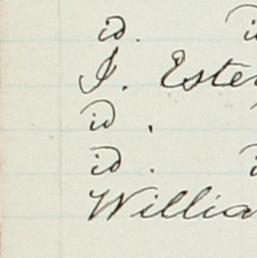 id.
J. Ester
id.
id.
Willia